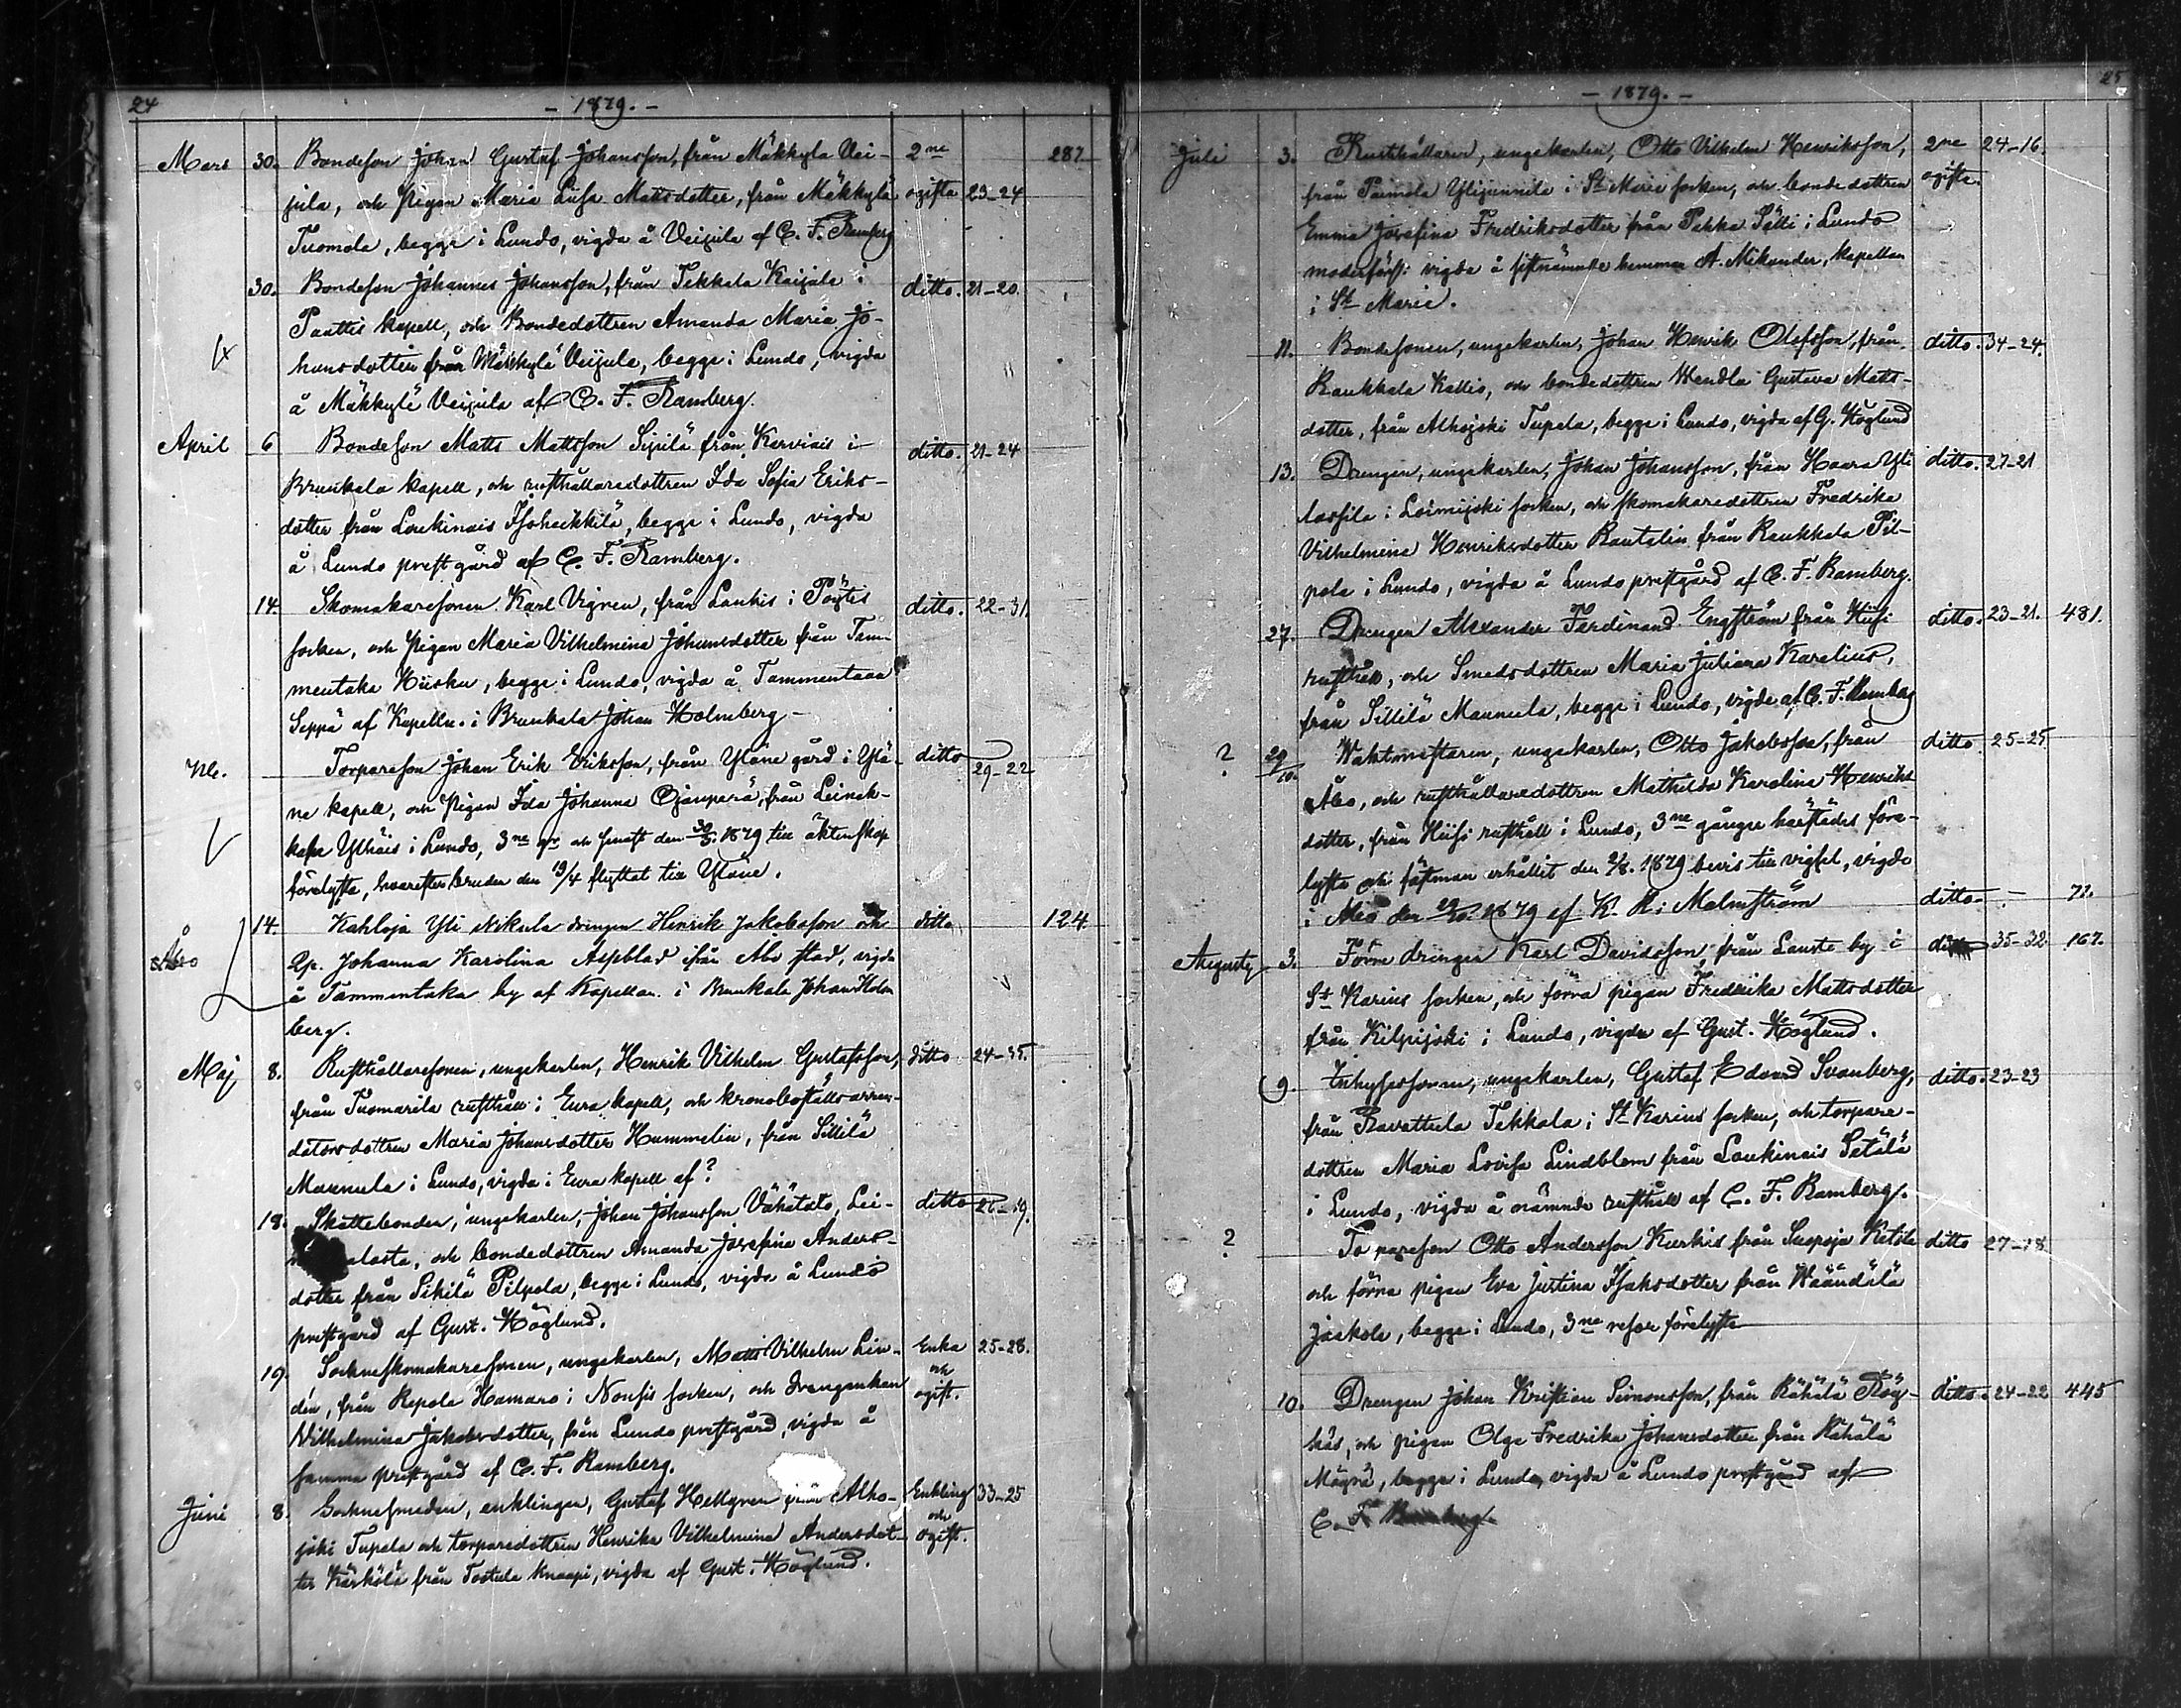 24
- 1879. -
Mars 30. Bondeson Johan Gustaf Johansson, från Mäkkylä Vei- 2ne 287
jula, och Pigan Maria Lisa Mattsdotter, från Mäkkylä ogifta 23-24
Tuomola, begge i Lundo, vigda å Veijula af C. F. Ramberg
30. Bondeson Johannes Johansson, från Tekkala i ditto. 21-20.
Paattis kapell, och Bondedottren Amanda Maria Jo-
hansdotter från Mäkkylä Veijula, begge i Lundo, vigda
å Mäkkylä Veijula af C. F. Ramberg.
April 6 Bondeson Matts Mattsson Sipilä från Karviais i ditto. 21-24
Brunkala kapell, och rusthållaredottren Ida Sofia Eriks-
dotter från Loukinais Isoheikkilä, begge i Lundo, vigda
å Lundo prestgård af C. F. Ramberg.
14. Skomakaresonen Karl Vigren, från Laukis i Pöytis ditto. 22-31
socken, och Pigan Maria Vilhelmina Johansdotter från Tam-
mentaka Kiisku, begge i Lundo, vigda å Tammentaka
Seppä af Kapellan i Brunkala Johan Holmberg -
Nb. Torpareson Johan Erik Eriksson, från Yläne gård i Ylä- ditto 29-22
ne kapell, och Pigan Ida Johanna Ojanperä, från Leinak-
kala Ylhäis i Lundo, 3ne gr och senast den 30/3. 1879 till äktenskap
förelysta, hvarefter bruden den 19/4 flyttat till Yläne.
Åbo 14. Kahloja Yli Nikula drengen Henrik Jakobsson och ditto 124
Qp. Johanna Karolina Aspblad från Åbo stad, vigda
å Tammentaka by af Kapellan i Brunkala Johan Holm
berg.
Maj 8. Rusthållaresonen, ungekarlen, Henrik Vilhelm Gustafsson, ditto 24-35.
från Tuomarila rusthåll i Eura kapell, och kronobeställsarren-
datorsdottren Maria Johansdotter Hummelin, från Sillilä
Maunula i Lundo, vigda i Eura kapell af ?
18. Skattebonden, ungekarlen, Johan Johansson Vähätalo, Lei- ditto
och bondedottren Amanda Josefina Anders-
dotter från Sikilä Pilpola, begge i Lundo, vigda å Lundo
prestgård af Gust. Höglund.
19. Socknskomakaresonen, ungekarlen, Matts Vilhelm Lin- Enka 25-28.
dén, från Repola Hamaro i Nousis socken, och Drengenkan och
Vilhelmina Jakobsdotter, från Lundo prestgård, vigda å ogift.
samma prestgård af C. F. Ramberg.
Juni 8. Socknesmeden, enklingen, Gustaf Hellgren från Alho- Enkling 33-25
joki Tupala och torparedottren Henrika Vilhelmina Andersdot- och
ter Kärkölä från Tostula Knaapi, vigda af Gust. Höglund. ogift.
25
- 1879. -
Juli 3. Rusthållaren, ungekarlen, Otto Vilhelm Henriksson, 2ne 24-16.
från Paimola Ylijunnila i St Marie socken, och bondedottren ogifta.
Emma Josefina Fredriksdotter från Pekka Sälli i Lundo
vigda å sistnämnde hemman A. Mikander, kapellan
i St Marie.
11. Bondesonen, ungekarlen, Johan Henrik Olofsson, från ditto. 34-24.
Raukkala Kallio, och bondedottren Wendla Gustava Matts-
dotter, från Alhojoki Tupala, begge i Lundo, vigda af G. Höglund
13. Drengen, ungekarlen, Johan Johansson, från Haara Yli ditto. 27-21
lassila i Loimijoki socken, och skomakaredottren Fredrika
Vilhelmina Henriksdotter Rautelin från Raukkala Pil-
pola i Lundo, vigda å Lundo prestgård af C. F. Ramberg.
27. Drengen Alexander Ferdinand Engström från Hiisi ditto. 23-21. 481.
rusthåll, och Smedsdottren Maria Juliana Karelius,
från Sillilä Maunula, begge i Lundo, vigda af C. F. Ramberg
? 29/10. Waktmästaren, ungekarlen, Otto Jakobsson, från ditto. 25-25
Åbo, och rusthållaredottren Mathilda Karolina Henriks
dotter, från Hiisi rusthåll i Lundo, 3ne gånger härstädes före-
lysta och fästman erhållit den 2/8. 1879 bevis till vigsel, vigda
i Åbo den 29/10. 1879 af K. R: Malmström ditto - 72.
Augusti 3. Förre drengen Karl Davidsson, från Lauste by i ditto 35-32 167.
St Karins socken, och förra pigan Fredrika Mattsdotter
från Kilpijoki i Lundo, vigda af Gust. Höglund.
9. Inhysessonen, ungekarlen, Gustaf Edvard Svanberg, ditto. 23-23
från Ravattula Tekkala i St Karins socken, och torpare-
dottren Maria Lovisa Lindblom från Loukinais Setälä
i Lundo, vigda å nämnde rusthåll af C. F. Ramberg.
? To pareson Otto Andersson Kurkis från Suopoja Ketola ditto 27-18
och förra pigan Eva Justina Isaksdotter från Wäändälä
Jaakola, begge i Lundo, 3ne resor förelysta
10. Drengen Johan Kristian Simonsson, från Rähälä Röy- ditto. 24-22 445
käs, och pigan Olga Fredrika Johansdotter från Rähälä
Mäyrä, begge i Lundo, vigda å Lundo prestgård af
C. F. Ramberg.